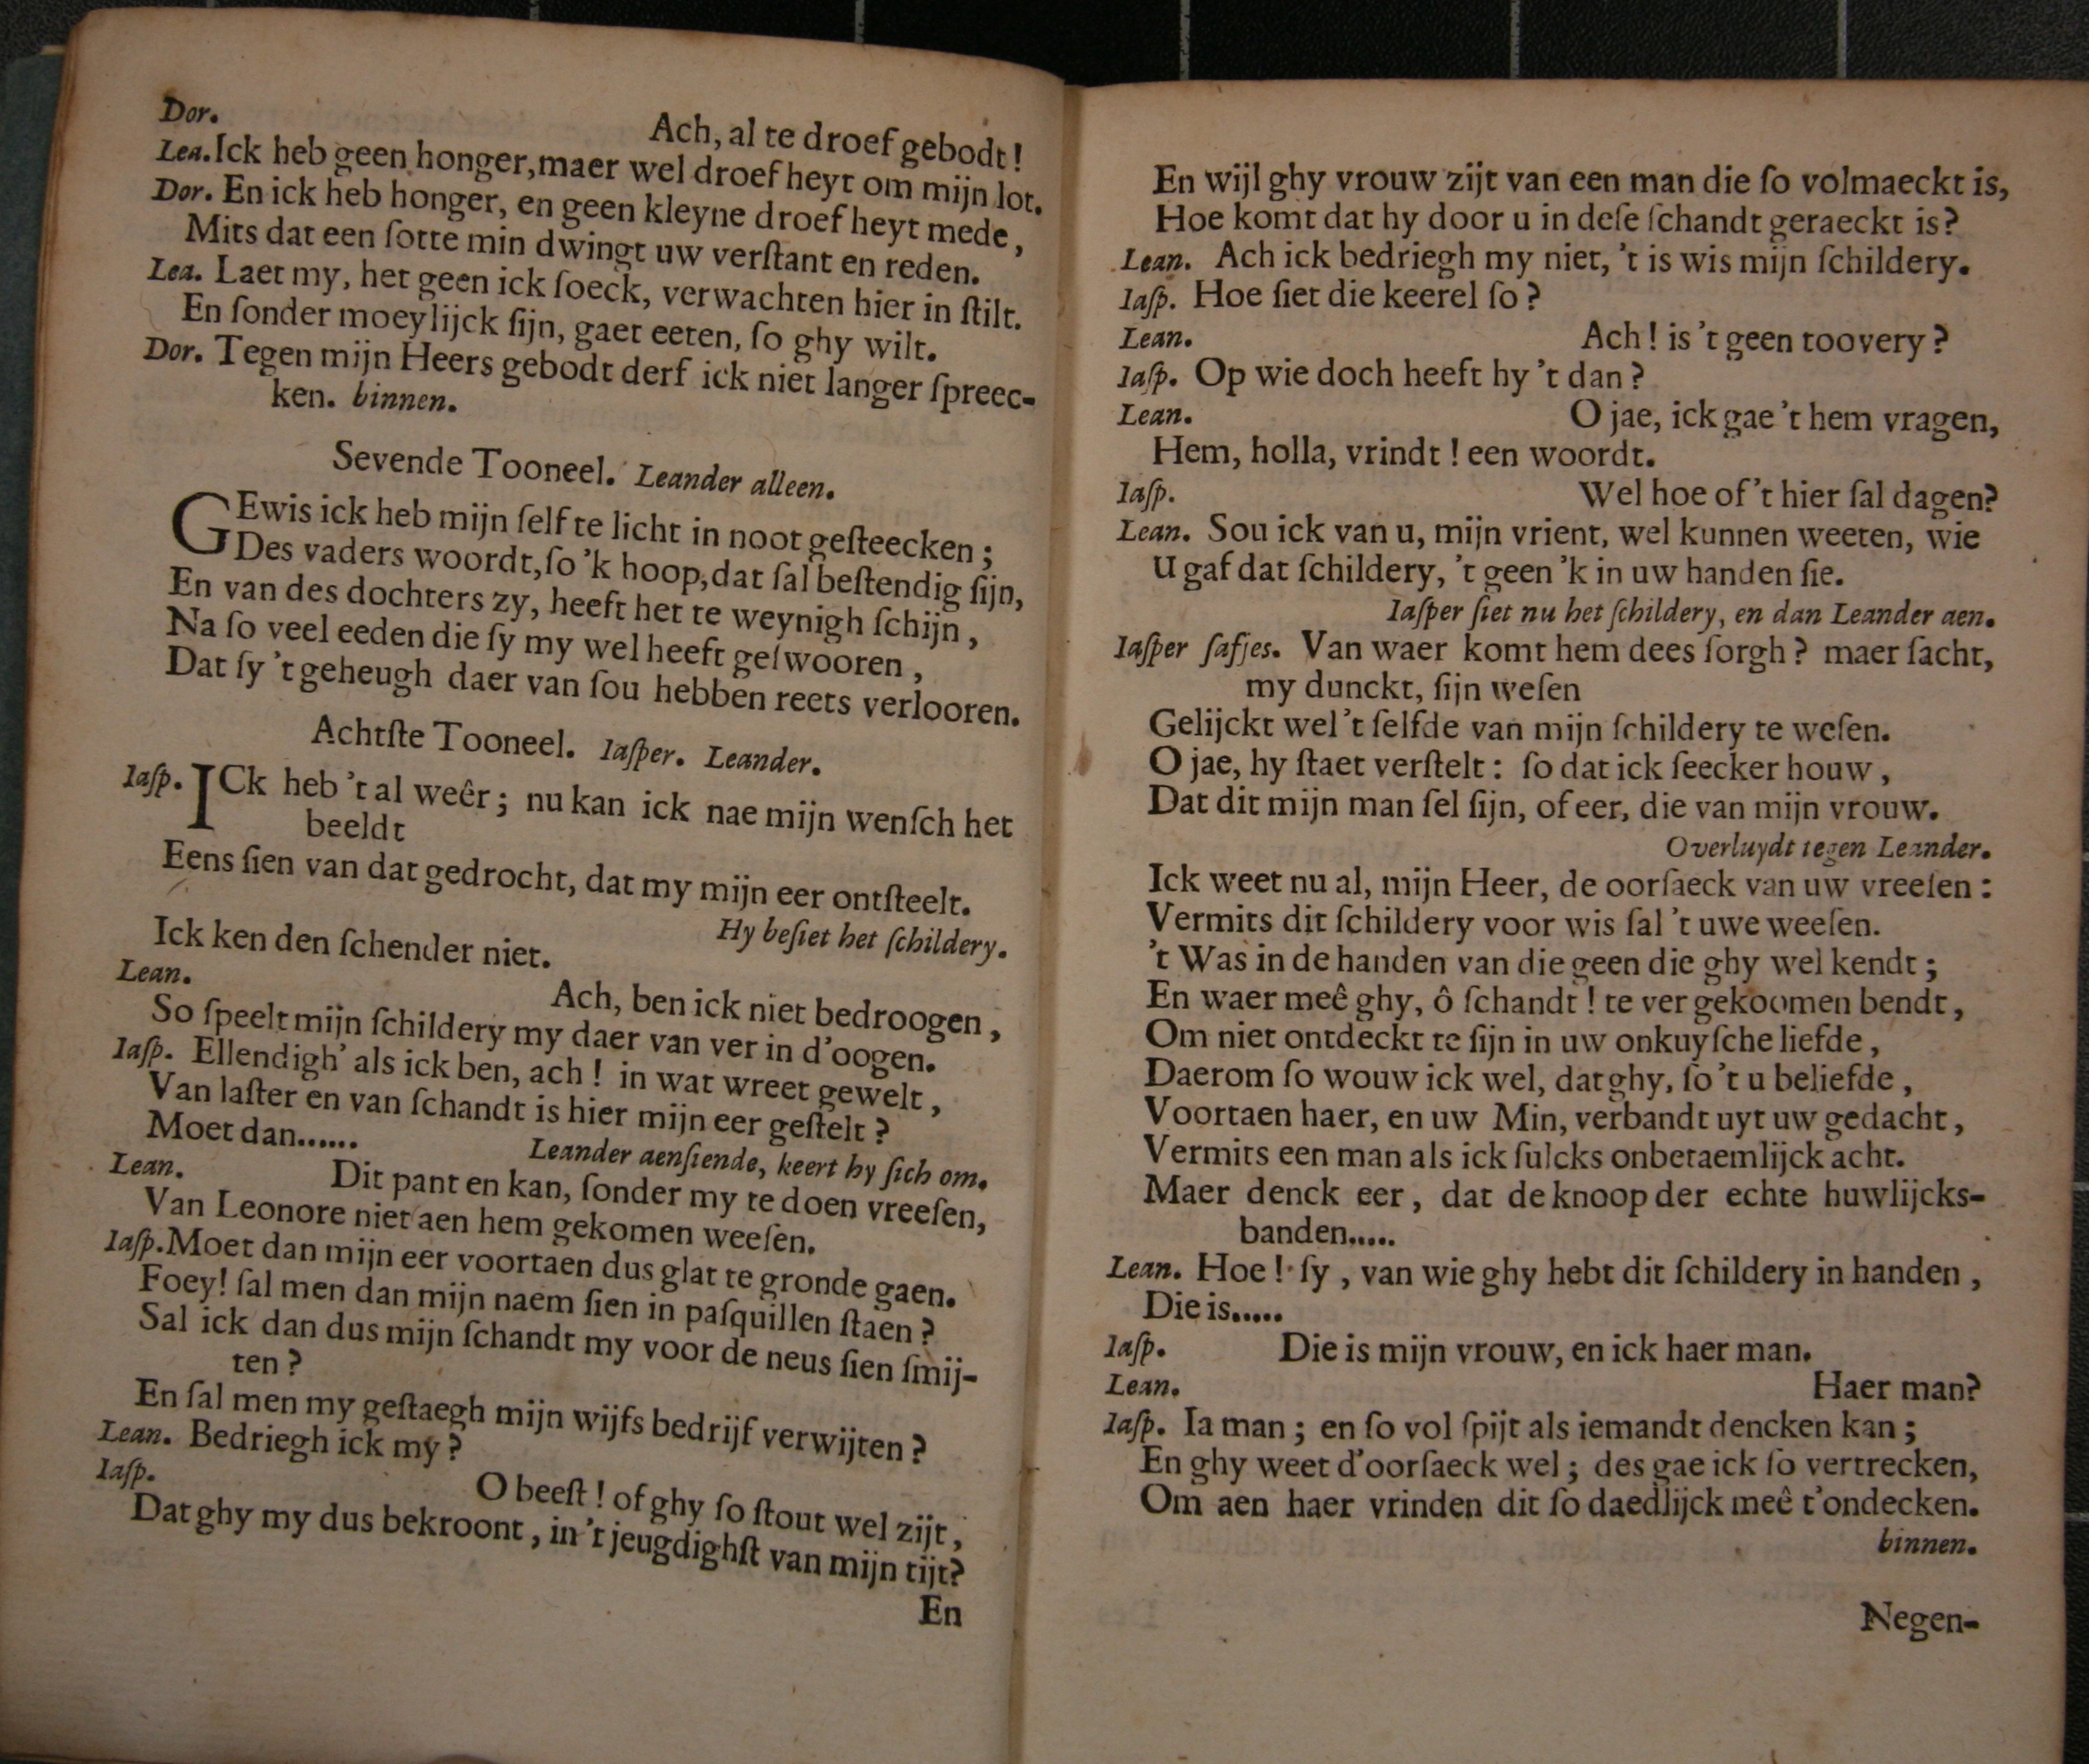 Dor. Ach, al te droef gebodt!
Lea. Ick heb geen honger, maer wel droefheyt om mijn lot.
Dor. En ick heb honger, en geen kleyne droefheyt mede,
Mits dat een ſotte min dwingt uw verſtant en reden.
Lea. Laet my, het geen ick ſoeck, verwachten hier in ſtilt.
En ſonder moeylijck ſijn, gaet eeten, ſo ghy wilt.
Dor. Tegen mijn Heers gebodt derf ick niet langer ſpreec-
ken. binnen.
Sevende Tooneel. Leander alleen.
GEwis ick heb mijn ſelf te licht in noot geſteecken;
Des vaders woordt, ſo 'k hoop, dat ſal beſtendig ſijn,
En van des dochters zy, heeft het te weynigh ſchijn,
Na ſo veel eeden die ſy my wel heeft geſwooren,
Dat ſy 't geheugh daer van ſou hebben reets verlooren.
Achtſte Tooneel. Iaſper. Leander.
Iaſp. ICk heb 't al weêr; nu kan ick nae mijn wenſch het
beeldt
Eens ſien van dat gedrocht, dat my mijn eer ontſteelt.
Hy beſiet het ſchildery.
Ick ken den ſchender niet.
Lean. Ach, ben ick niet bedroogen,
So ſpeelt mijn ſchildery my daer van ver in d'oogen.
Iaſp. Ellendigh' als ick ben, ach! in wat wreet gewelt,
Van laſter en van ſchandt is hier mijn eer geſtelt?
Moet dan...... Leander aenſiende, keert hy ſich om.
Lean. Dit pant en kan, ſonder my te doen vreeſen,
Van Leonore niet aen hem gekomen weeſen.
Iaſp. Moet dan mijn eer voortaen dus glat te gronde gaen.
Foey! ſal men dan mijn naem ſien in paſquillen ſtaen?
Sal ick dan dus mijn ſchandt my voor de neus ſien ſmij-
ten?
En ſal men my geſtaegh mijn wijfs bedrijf verwijten?
Lean. Bedriegh ick my?
Iaſp. O beeſt! of ghy ſo ſtout wel zijt,
Dat ghy my dus bekroont, in 't jeugdighſt van mijn tijt?
En
En wijl ghy vrouw zijt van een man die ſo volmaeckt is,
Hoe komt dat hy door u in deſe ſchandt geraeckt is?
Lean. Ach ick bedriegh my niet, 't is wis mijn ſchildery.
Iaſp. Hoe ſiet die keerel ſo?
Lean. Ach! is 't geen toovery?
Iaſp. Op wie doch heeft hy 't dan?
Lean. O jae, ick gae 't hem vragen,
Hem, holla, vrindt! een woordt.
Iaſp. Wel hoe of 't hier ſal dagen?
Lean. Sou ick van u, mijn vrient, wel kunnen weeten, wie
U gaf dat ſchildery, 't geen 'k in uw handen ſie.
Iaſper ſiet nu het ſchildery, en dan Leander aen.
Iaſper ſafjes. Van waer komt hem dees ſorgh? maer ſacht,
my dunckt, ſijn weſen
Gelijckt wel 't ſelfde van mijn ſchildery te weſen.
O jae, hy ſtaet verſtelt: ſo dat ick ſeecker houw,
Dat dit mijn man ſel ſijn, of eer, die van mijn vrouw.
Overluydt tegen Leander.
Ick weet nu al, mijn Heer, de oorſaeck van uw vreeſen:
Vermits dit ſchildery voor wis ſal 't uwe weeſen.
't Was in de handen van die geen die ghy wel kendt;
En waer meê ghy, ô ſchandt! te ver gekoomen bendt,
Om niet ontdeckt te ſijn in uw onkuyſche liefde,
Daerom ſo wouw ick wel, dat ghy, ſo 't u beliefde,
Voortaen haer, en uw Min, verbandt uyt uw gedacht,
Vermits een man als ick ſulcks onbetaemlijck acht.
Maer denck eer, dat de knoop der echte huwlijcks-
banden.....
Lean. Hoe! ſy, van wie ghy hebt dit ſchildery in handen,
Die is.....
Iaſp. Die is mijn vrouw, en ick haer man.
Lean. Haer man?
Iaſp. Ia man; en ſo vol ſpijt als iemandt dencken kan;
En ghy weet d'oorſaeck wel; des gae ick ſo vertrecken,
Om aen haer vrinden dit ſo daedlijck meê t'ondecken.
binnen.
Negen-